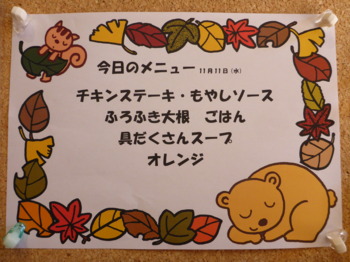 今日のメニュー 11月11日(水)
チキンステーキ・もやしソース
ふろふき大根 ごはん
具だくさんスープ
オレンジ